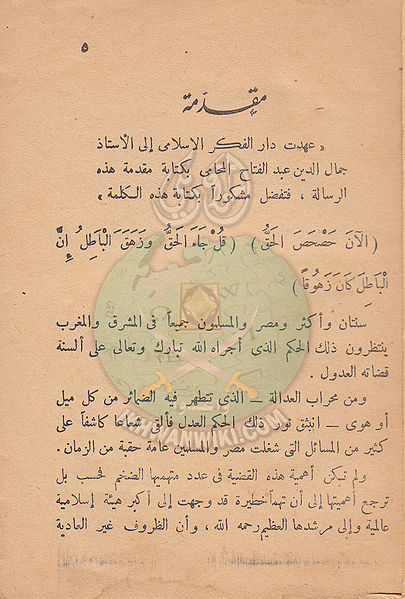 ٥
مقدّمة
« عهدت دار الفكر الإسلامى إلى الأستاذ
جمال الدين عبد الفتاح المحامى بكتابة مقدمة هذه
الرسالة ، فتفضل مشكوراً بكتابة هذه الكلمة »
( الآنَ حَصْحَصَ الحَقُّ ) ( قُلْ جَاءَ الحَقُّ وَزَهَقَ الْبَاطِلُ إِنَّ
الْبَاطِلَ كَانَ زَهُوقًا )
سنتان وأكثر ومصر والمسلمون جميعاً فى المشرق والمغرب
ينتظرون ذلك الحكم الذى أجراه الله تبارك وتعالى على ألسنة
قضاته العدول .
ومن محراب العدالة — الذى تتطهر فيه الضمائر من كل ميل
أو هوى — انبثق نور ذلك الحكم العدل فألقى شعاعا كاشفاً على
كثير من المسائل التى شغلت مصر والمسلمين عامة حقبة من الزمان .
ولم تكن أهمية هذه القضية فى عدد متهميها الضخم فحسب بل
ترجع أهميتها إلى أن تهماً خطيرة قد وجهت إلى أكبر هيئة إسلامية
عالمية وإلى مرشدها العظيم رحمه الله ، وأن الظروف غير العادية
IKHWANWIKI.COM